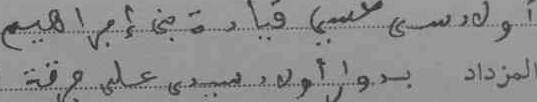 أولاد سي عيسى قيادة بني إبراهيم
المزداد بدوار أولاد سيدي علي فرقة